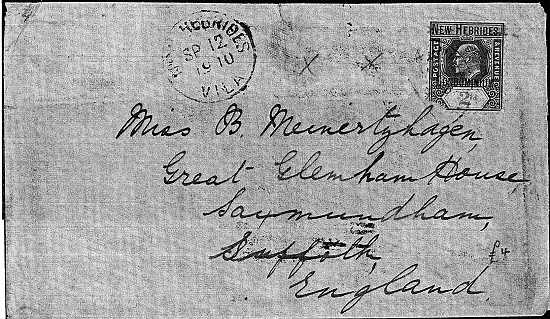 NEW HEBRIDES
SP 12
1910
VILA
NEW HEBRIDES
POSTAGE
& REVENUE
2
Miss B. Meinertzhagen
Great Glemham House,
Saxmundham,
Suffolk,
England.
£4